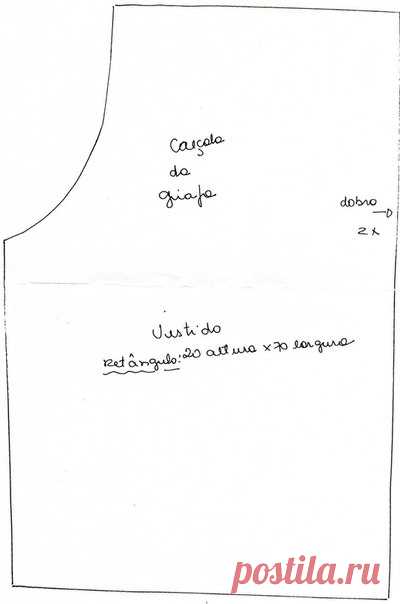 Calçola
da
girafa
dobro
2x
Vestido
Retângulo: 20 altura x 70 largura
postila.ru